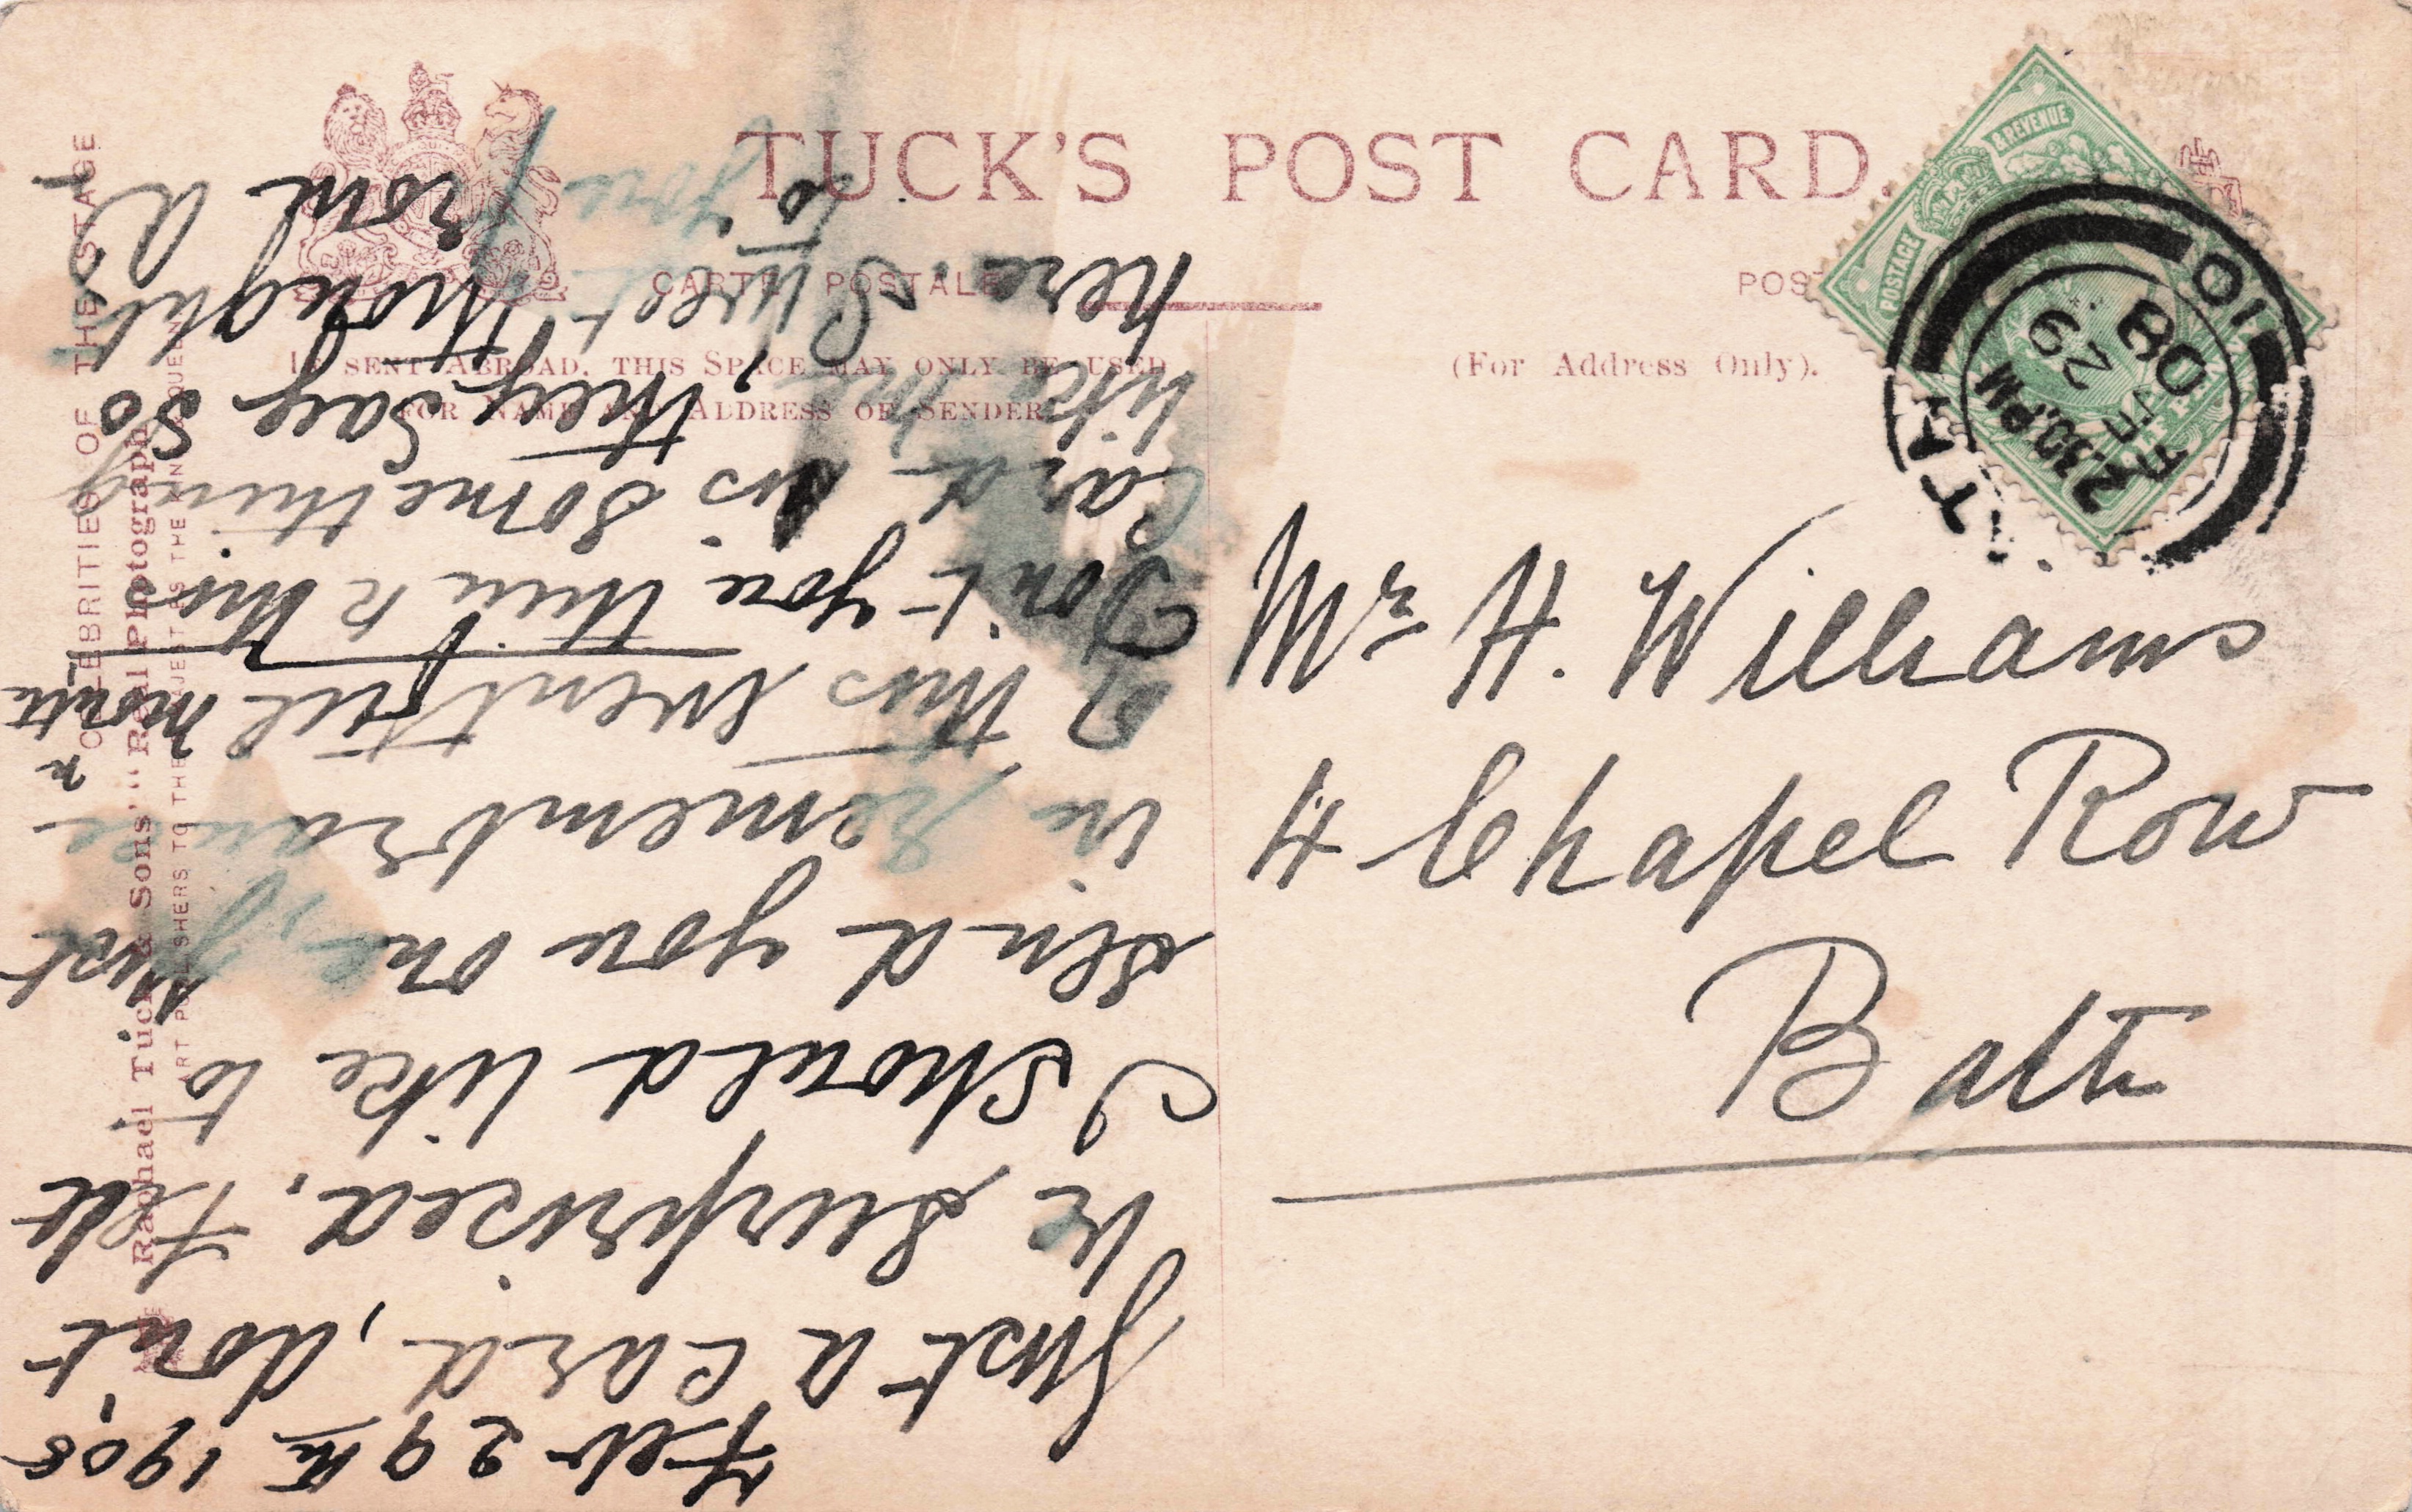 TUCK'S POST CARD.
CARTE POSTALE
POST
IF SENT ABROAD, THIS SPACE MAY ONLY BE USED
FOR NAME AND ADDRESS OF SENDER
(For Address Only).
POSTAGE & REVENUE
2.30.PM
FE 29
08
101
Mr H. Williams
4 Chapel Row
Bath
Feb 29th 1908,
Just a card, dont
be surprised, Felt
I should like to
send you one, just
in remembrance
of this eventful month
Don't you think this
Card is something
like me, they say so
here. Sweet thought
to you from
CELEBRITIES OF THE STAGE
Raphael Tuck & Sons' "Real Photograph
ART PUBLISHERS TO THE THE KING QUEEN